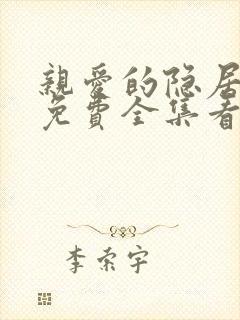 親愛的隐居
免費全集看
李索宇